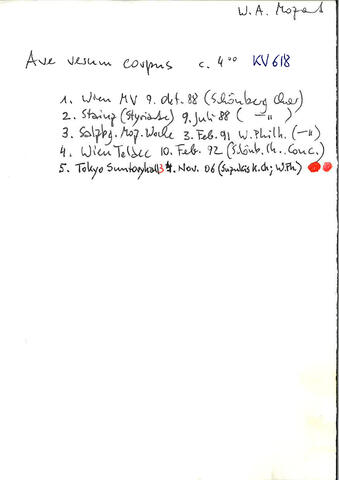 W. A. Mozart
Ave verum corpus c. 4°° KV 618
1. Wien MV 9. Okt. 88 (Schönberg Chor)
2. Stainz (Styriarte) 9. Juli 88 ( —"— )
3. Salzbg. Moz. Woche 3. Feb. 91 W. Philh. (—"—)
4. Wien Teldec 10. Feb. 92 (Schönb. Ch. Conc.)
5. Tokyo Suntoryhall 4. Nov. 06 (K. Ch; W. Ph.)